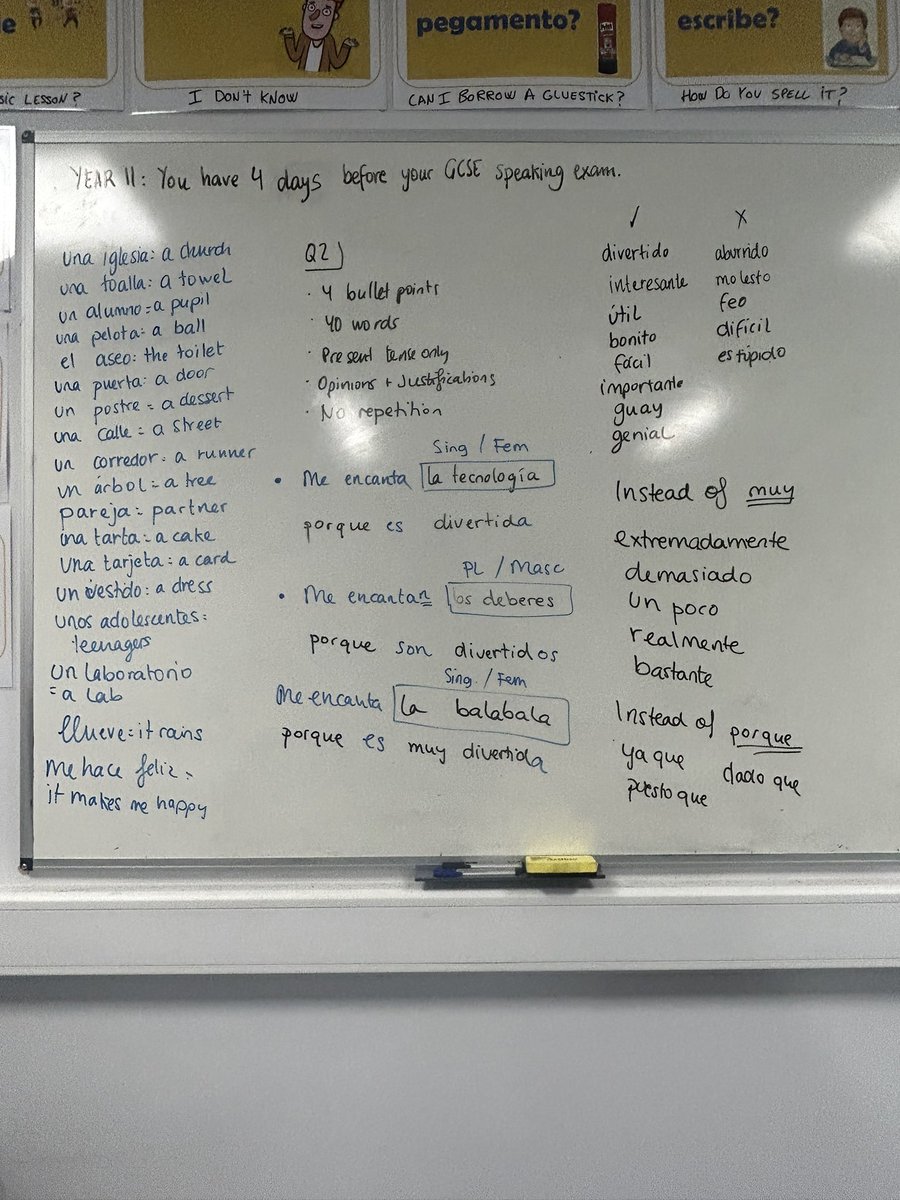 e
pegamento?
escribe?
SIC LESSON?
I DON'T KNOW
CAN I BORROW A GLUESTICK?
HOW DO YOU SPELL IT?
YEAR 11: You have 4 days before your GCSE speaking exam.
una iglesia: a church
una toalla: a towel
un alumno = a pupil
una pelota: a ball
el aseo: the toilet
una puerta: a door
un postre = a dessert
una calle = a street
un corredor: a runner
un árbol = a tree
pareja = partner
una tarta: a cake
una tarjeta: a card
un vestido: a dress
unos adolescentes:
teenagers
un laboratorio
= a lab
llueve = it rains
me hace feliz =
it makes me happy
Q2)
· 4 bullet points
· 40 words
· Present tense only
· Opinions + Justifications
· No repetition
Sing / Fem
• Me encanta la tecnología
porque es divertida
PL / Masc
• Me encantan los deberes
porque son divertidos
Sing. / Fem
Me encanta la balabala
porque es muy divertida
✓ X
divertido aburrido
interesante molesto
útil feo
bonito difícil
fácil estúpido
importante
guay
genial
Instead of muy
extremadamente
demasiado
un poco
realmente
bastante
Instead of porque
ya que dado que
puesto que